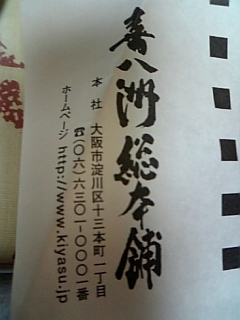 喜八洲総本舗
本社 大阪市淀川区十三本町一丁目
☎(〇六)六三〇一-〇〇〇一番
ホームページ http://www.kiyasu.jp